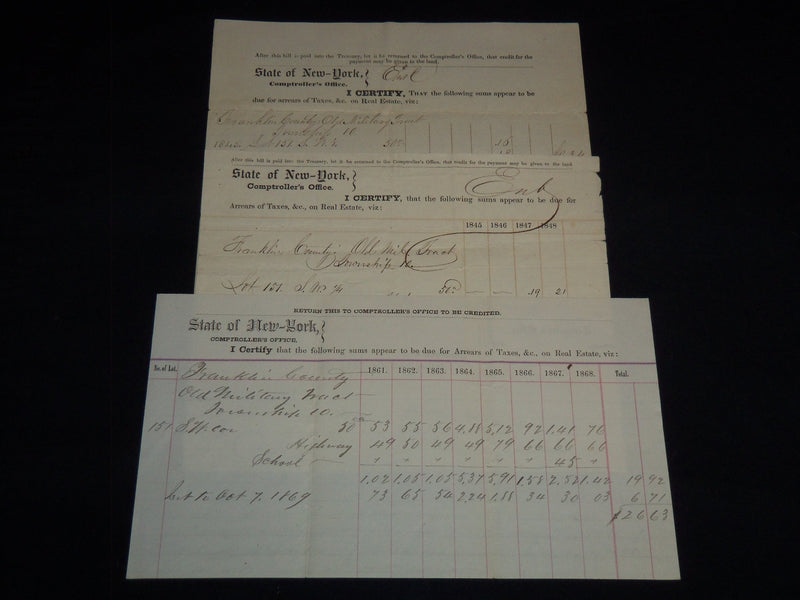 After this bill is paid into the Treasury, let it be returned to the Comptroller's Office, that credit for the
payment may be given to the land.
State of New-York,
Comptroller's Office.
I CERTIFY, THAT the following sums appear to be
due for arrears of Taxes, &c. on Real Estate, viz:
Franklin County Old Military Tract
Township 10
Lot 151.
After this bill is paid into the Treasury, let it be returned to the Comptroller's Office, that credit for the payment may be given to the land
State of New-York,
Comptroller's Office.
I CERTIFY, that the following sums appear to be due for
Arrears of Taxes, &c., on Real Estate, viz:
1845 1846 1847 1848
Franklin County Old Mil. Tract
Township 10.
Lot 151. S.W. 50 — — 19 21
RETURN THIS TO COMPTROLLER'S OFFICE TO BE CREDITED.
State of New-York,
COMPTROLLER'S OFFICE,
I Certify that the following sums appear to be due for Arrears of Taxes, &c., on Real Estate, viz:
No. of Lot. 1861. 1862. 1863. 1864. 1865. 1866. 1867. 1868. Total.
Franklin County
Old Military Tract
Township 10.
151 S.W. cor 50 53 55 56 4.88 5.12 92 1.41 76
Highway 49 50 49 49 79 66 66 66
School — " " " " " " 45 "
1.02 1.05 1.05 5.37 5.91 1.58 2.52 1.42 19 92
Int to Oct 7. 1869 73 65 54 2.24 1.88 34 30 03 6 71
$26 63